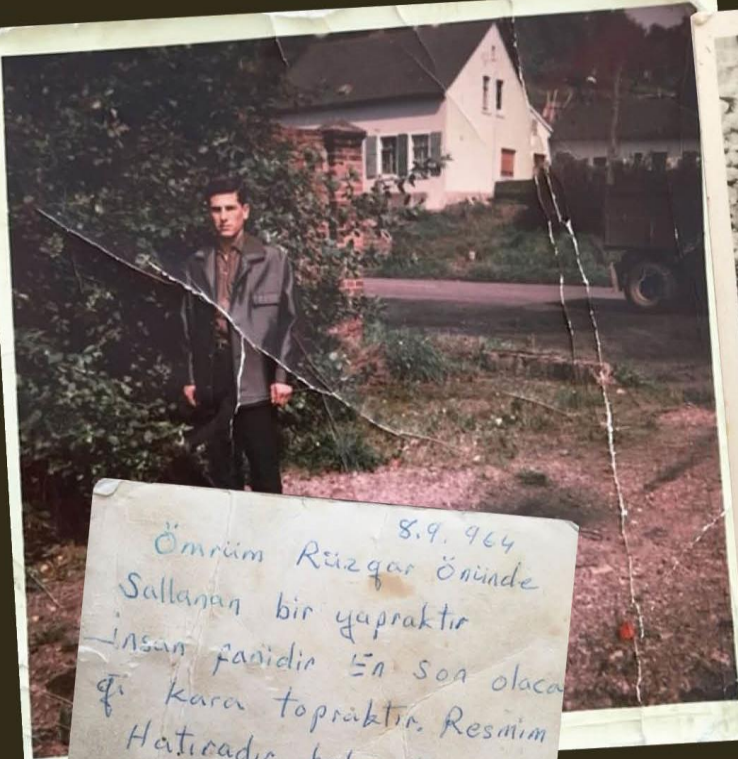 8.9.964
Ömrüm Rüzgar Önünde
Sallanan bir yapraktır
İnsan fanidir En son olaca
ğı kara topraktır. Resmim
Hatıradır